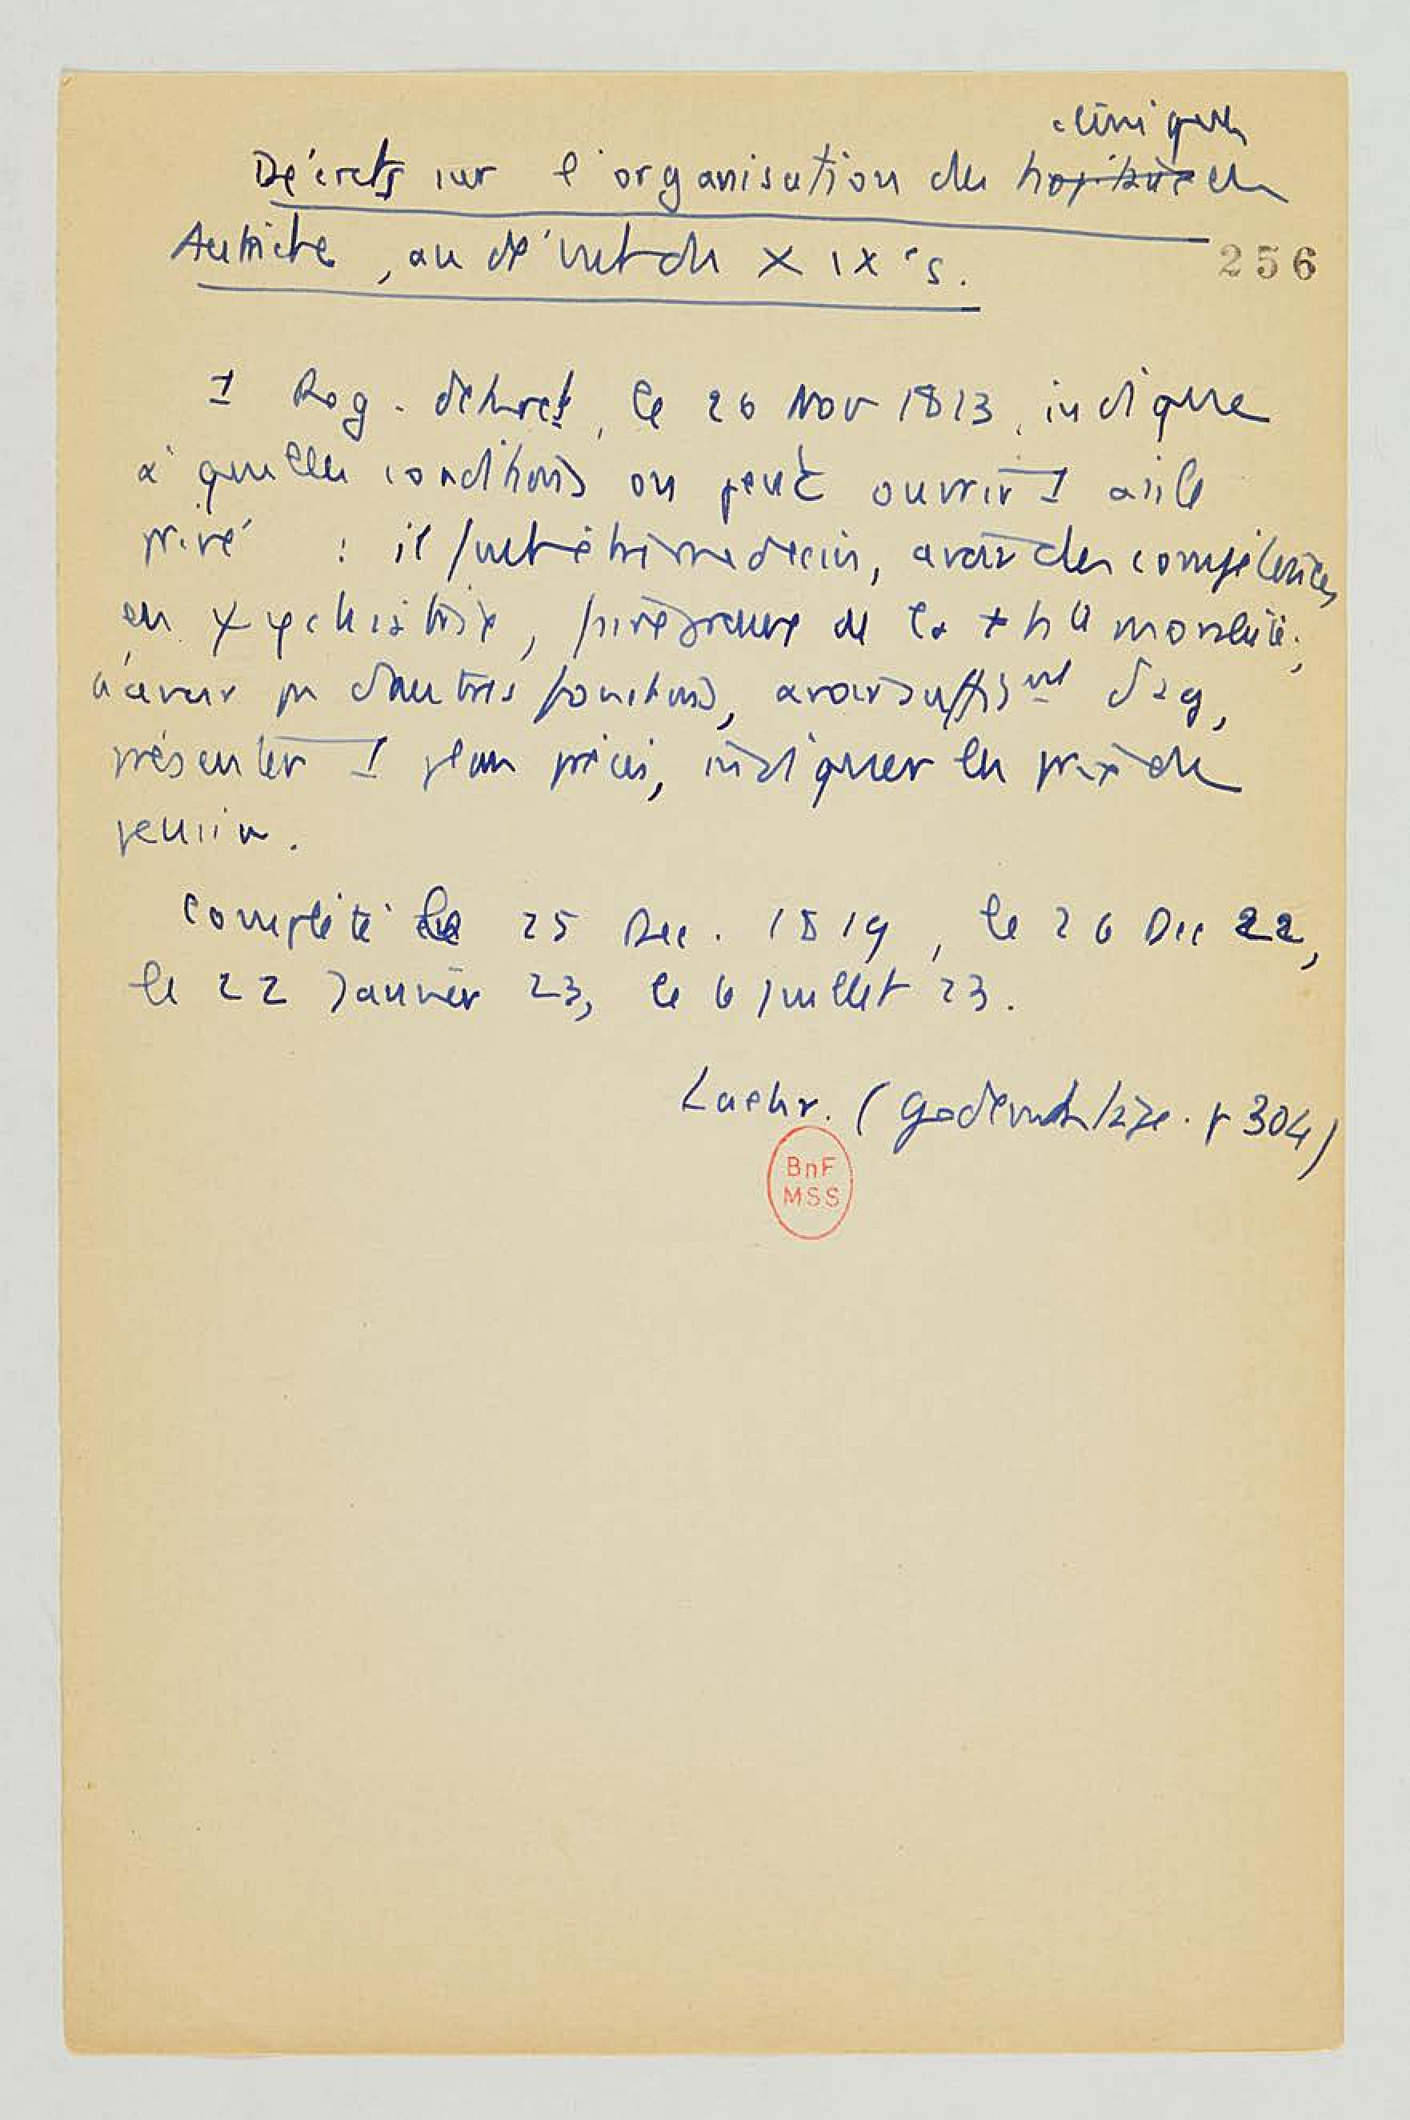 cliniques
Décrets sur l'organisation des hopitaux en
Autriche, au début du XIX°s.
256
I Reg. dekret, le 26 Nov 1813, indique
à quelles conditions on peut ouvrir I asile
privé : il faut être médecin, avoir des compétences
en ψychiatrie, faire preuve de la + h^te moralité,
n'avoir pas d'autres fonctions, avoir suffis^mt d'ag,
présenter I plan précis, indiquer les prix de
pension.
Complété le 25 Dec. 1819, le 26 Dec 22,
le 22 Janvier 23, le 6 juillet 23.
Laehr. (Gedenktage. p 304)
BnF
MSS